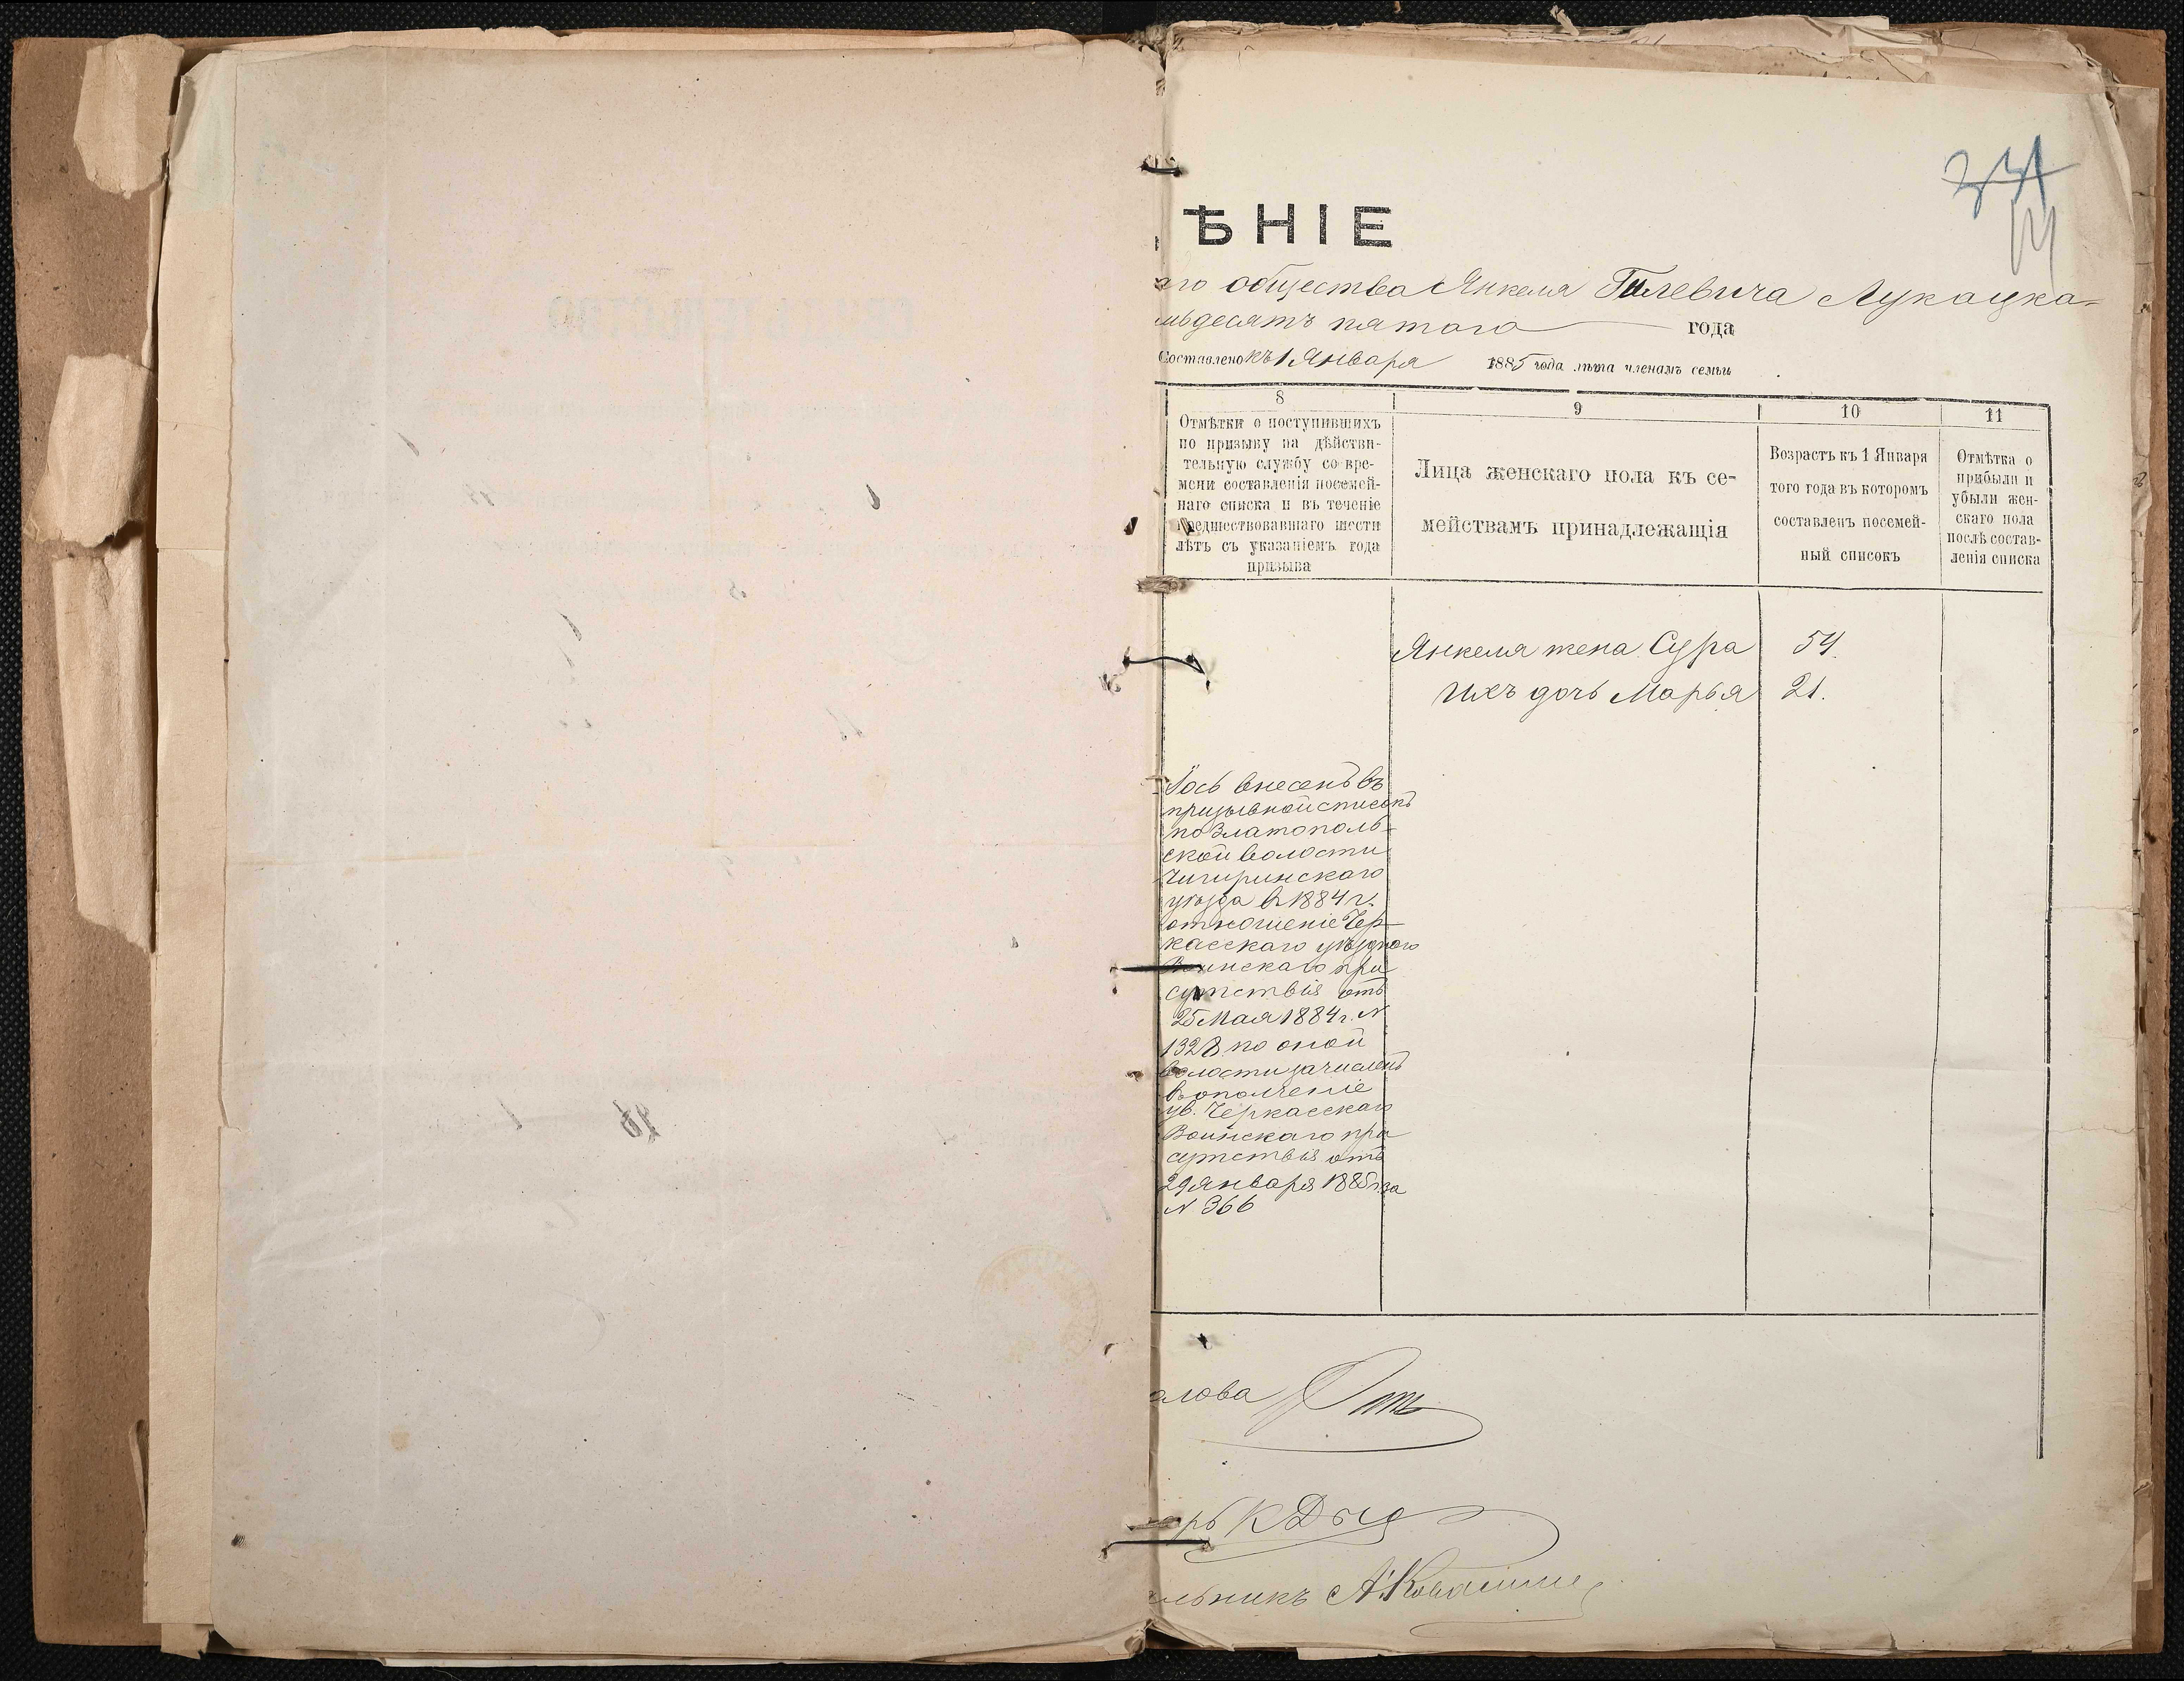 ѢНІЕ
аго общества Янкеля Гилевича Лукацка-
мьдесятъ пятаго года
Составлено къ 1 Января 1885 года лѣта членамъ семьи
8
9
10
11
Отмѣтки о поступившихъ
по призыву на дѣйстви-
тельную службу со вре-
мени составленія посемей-
наго списка и въ теченіе
предшествовавшаго шести
лѣтъ съ указаніемъ года
призыва
Лица женскаго пола къ се-
мействамъ принадлежащія
Возрастъ къ 1 Января
того года въ которомъ
составленъ посемей-
ный списокъ
Отмѣтка о
прибыли и
убыли жен-
скаго пола
послѣ состав-
ленія списка
Янкеля жена Сура 54.
Ихъ дочь Марья 21.
Іось внесенъ въ
призывной списокъ
по Златополь-
ской волости
Чигиринскаго
уѣзда въ 1884 г.
отношеніе Чер-
касскаго уѣзднаго
Воинскаго при
сутствія отъ
25 Мая 1884 г. №
1328 по оной
волости зачисленъ
въ ополченіе
ув. Черкасскаго
Воинскаго при
сутствія отъ
29 Января 1885 г. за
№ 366
олова
арь К
альникъ А.